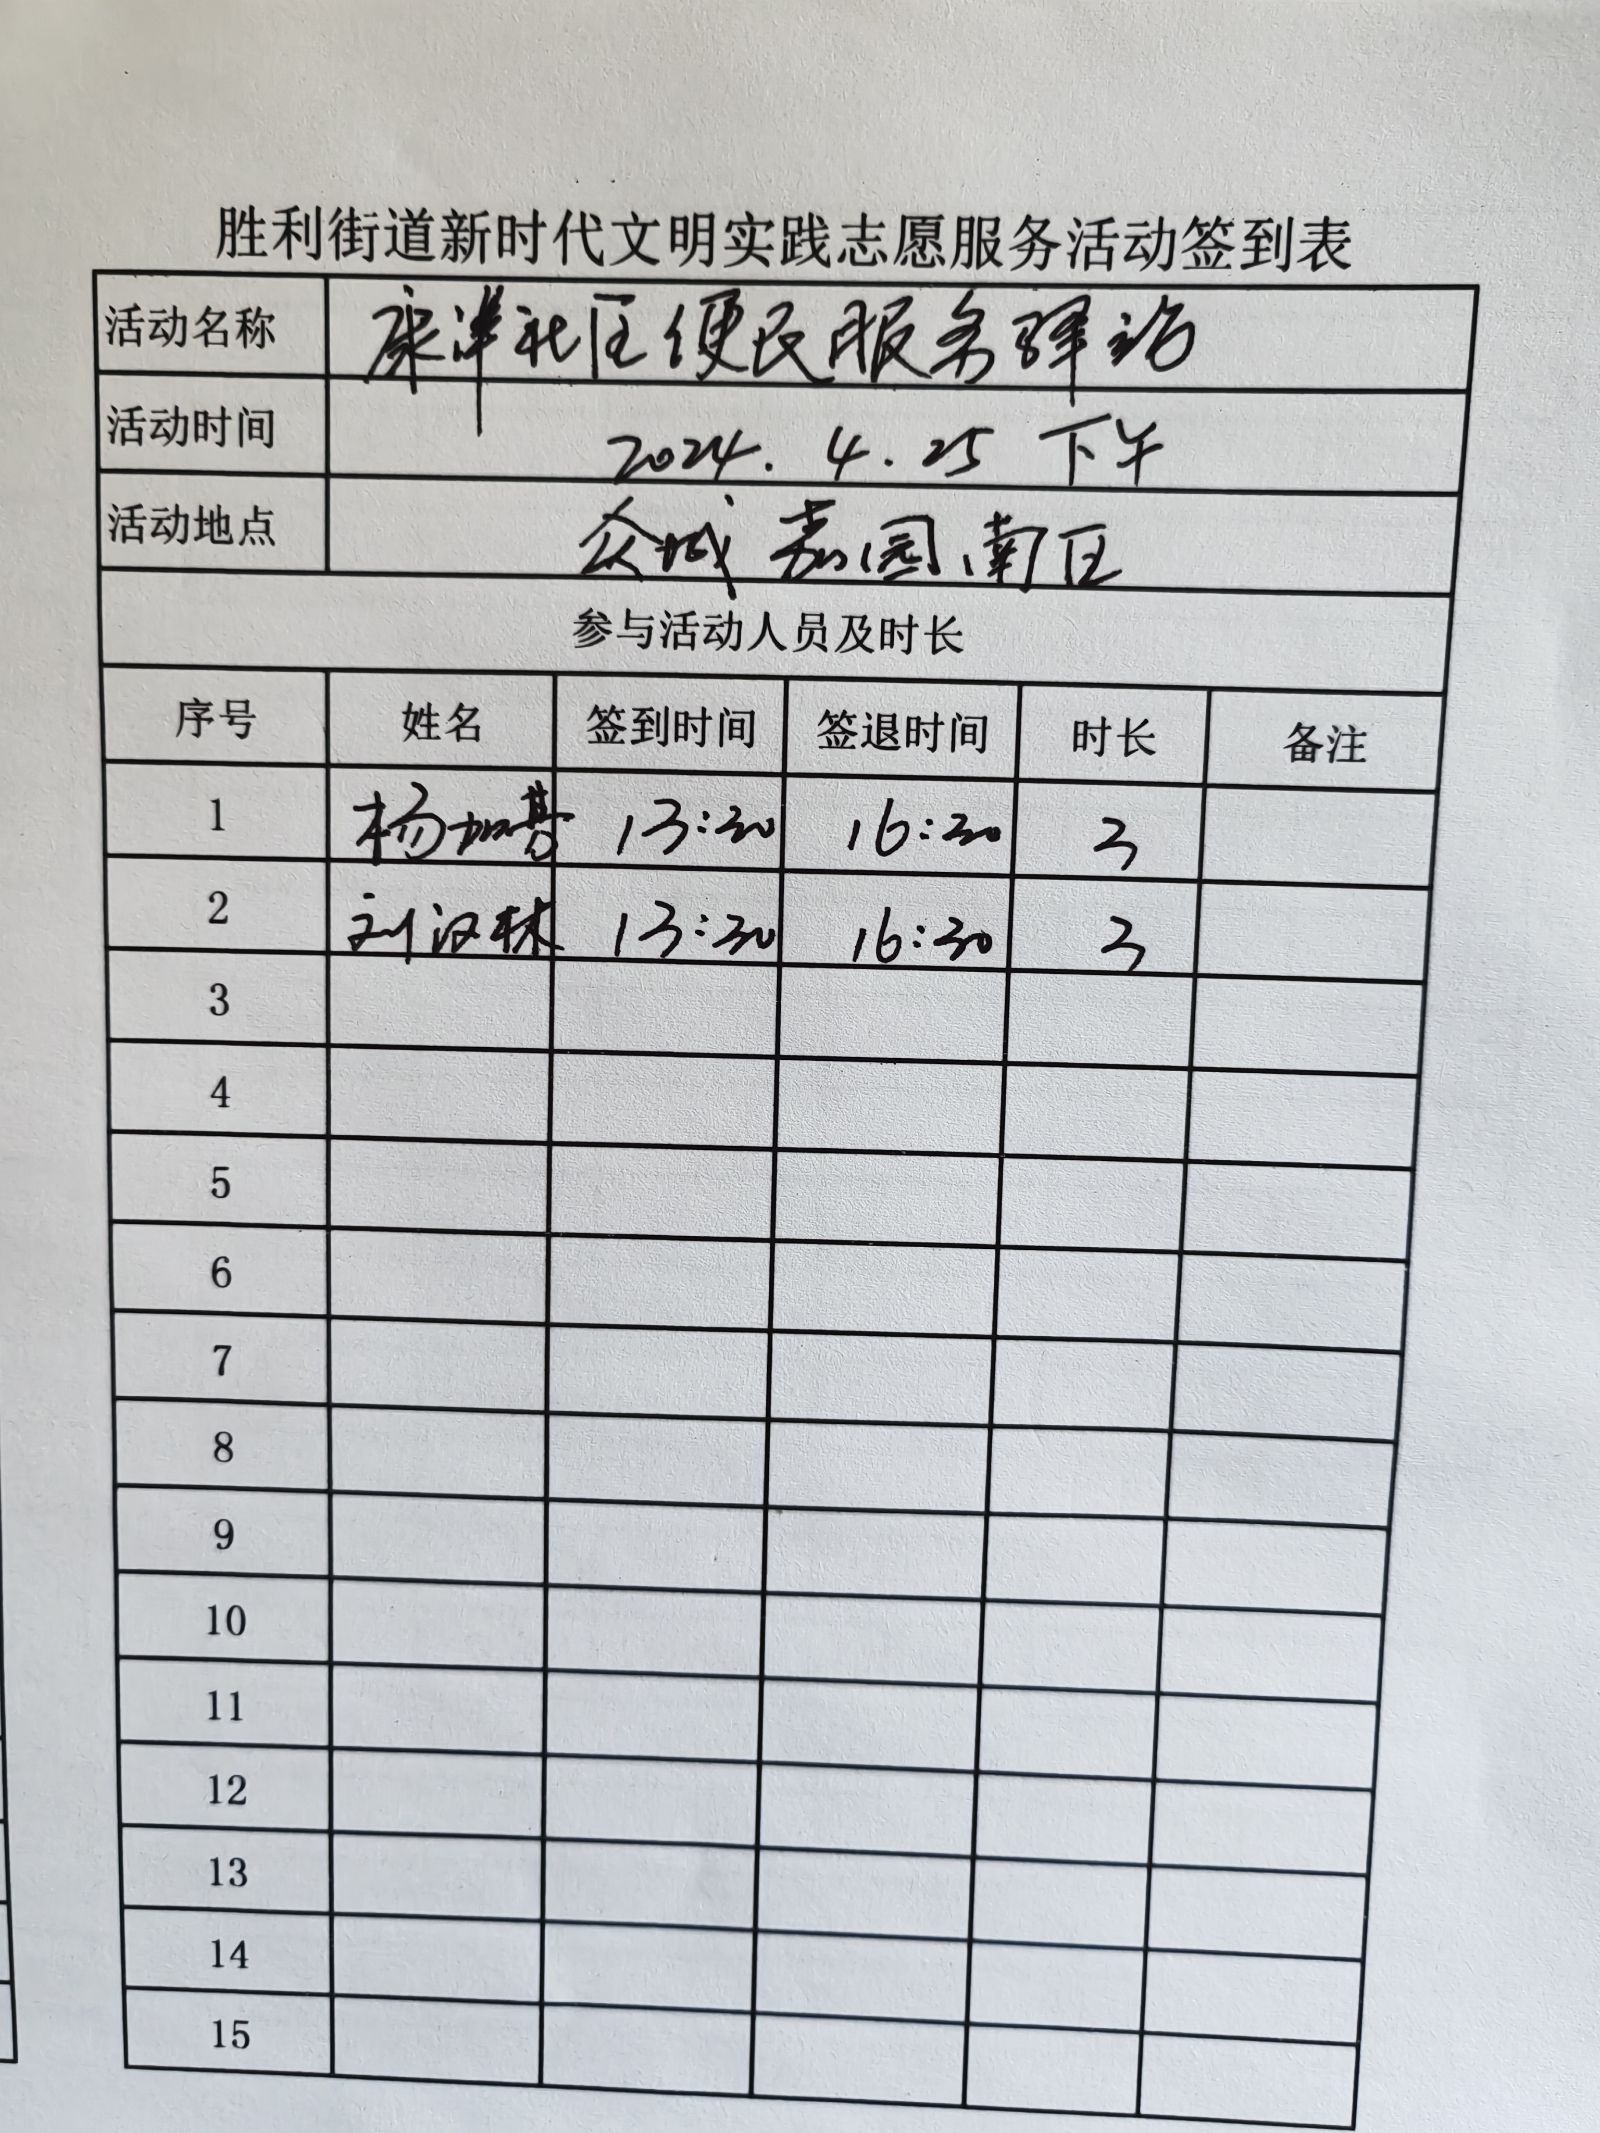 胜利街道新时代文明实践志愿服务活动签到表
活动名称 康津社区便民服务驿站
活动时间 2024.4.25 下午
活动地点 众城嘉园南区
参与活动人员及时长
序号 姓名 签到时间 签退时间 时长 备注
1 杨加 13:30 16:30 3
2 刘汉林 13:30 16:30 3
3
4
5
6
7
8
9
10
11
12
13
14
15